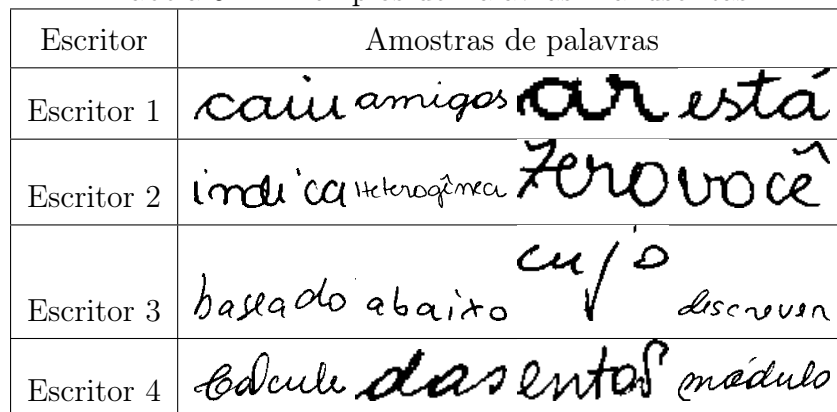 Escritor Amostras de palavras
Escritor 1 caiu amigos ar está
Escritor 2 indica Heterogênea Zero você
Escritor 3 baseado abaixo cujo descrever
Escritor 4 Calcule das entos módulo